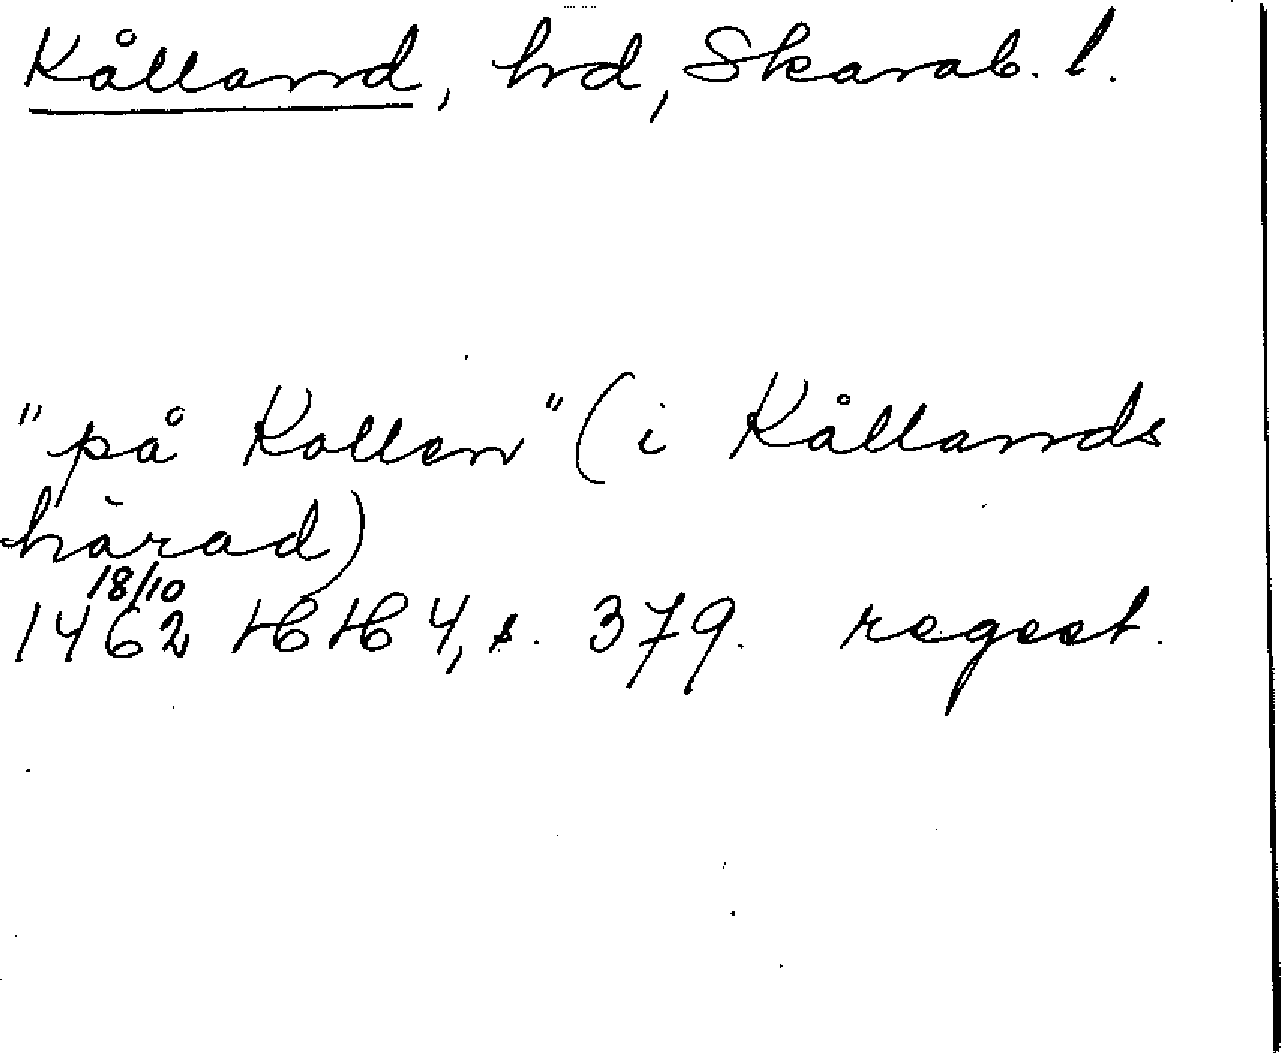 Kålland, hd, Skarab. l.
"på Kollen" (i Kållands
härad)
18/10
1462 HH 4, s. 379. regest.